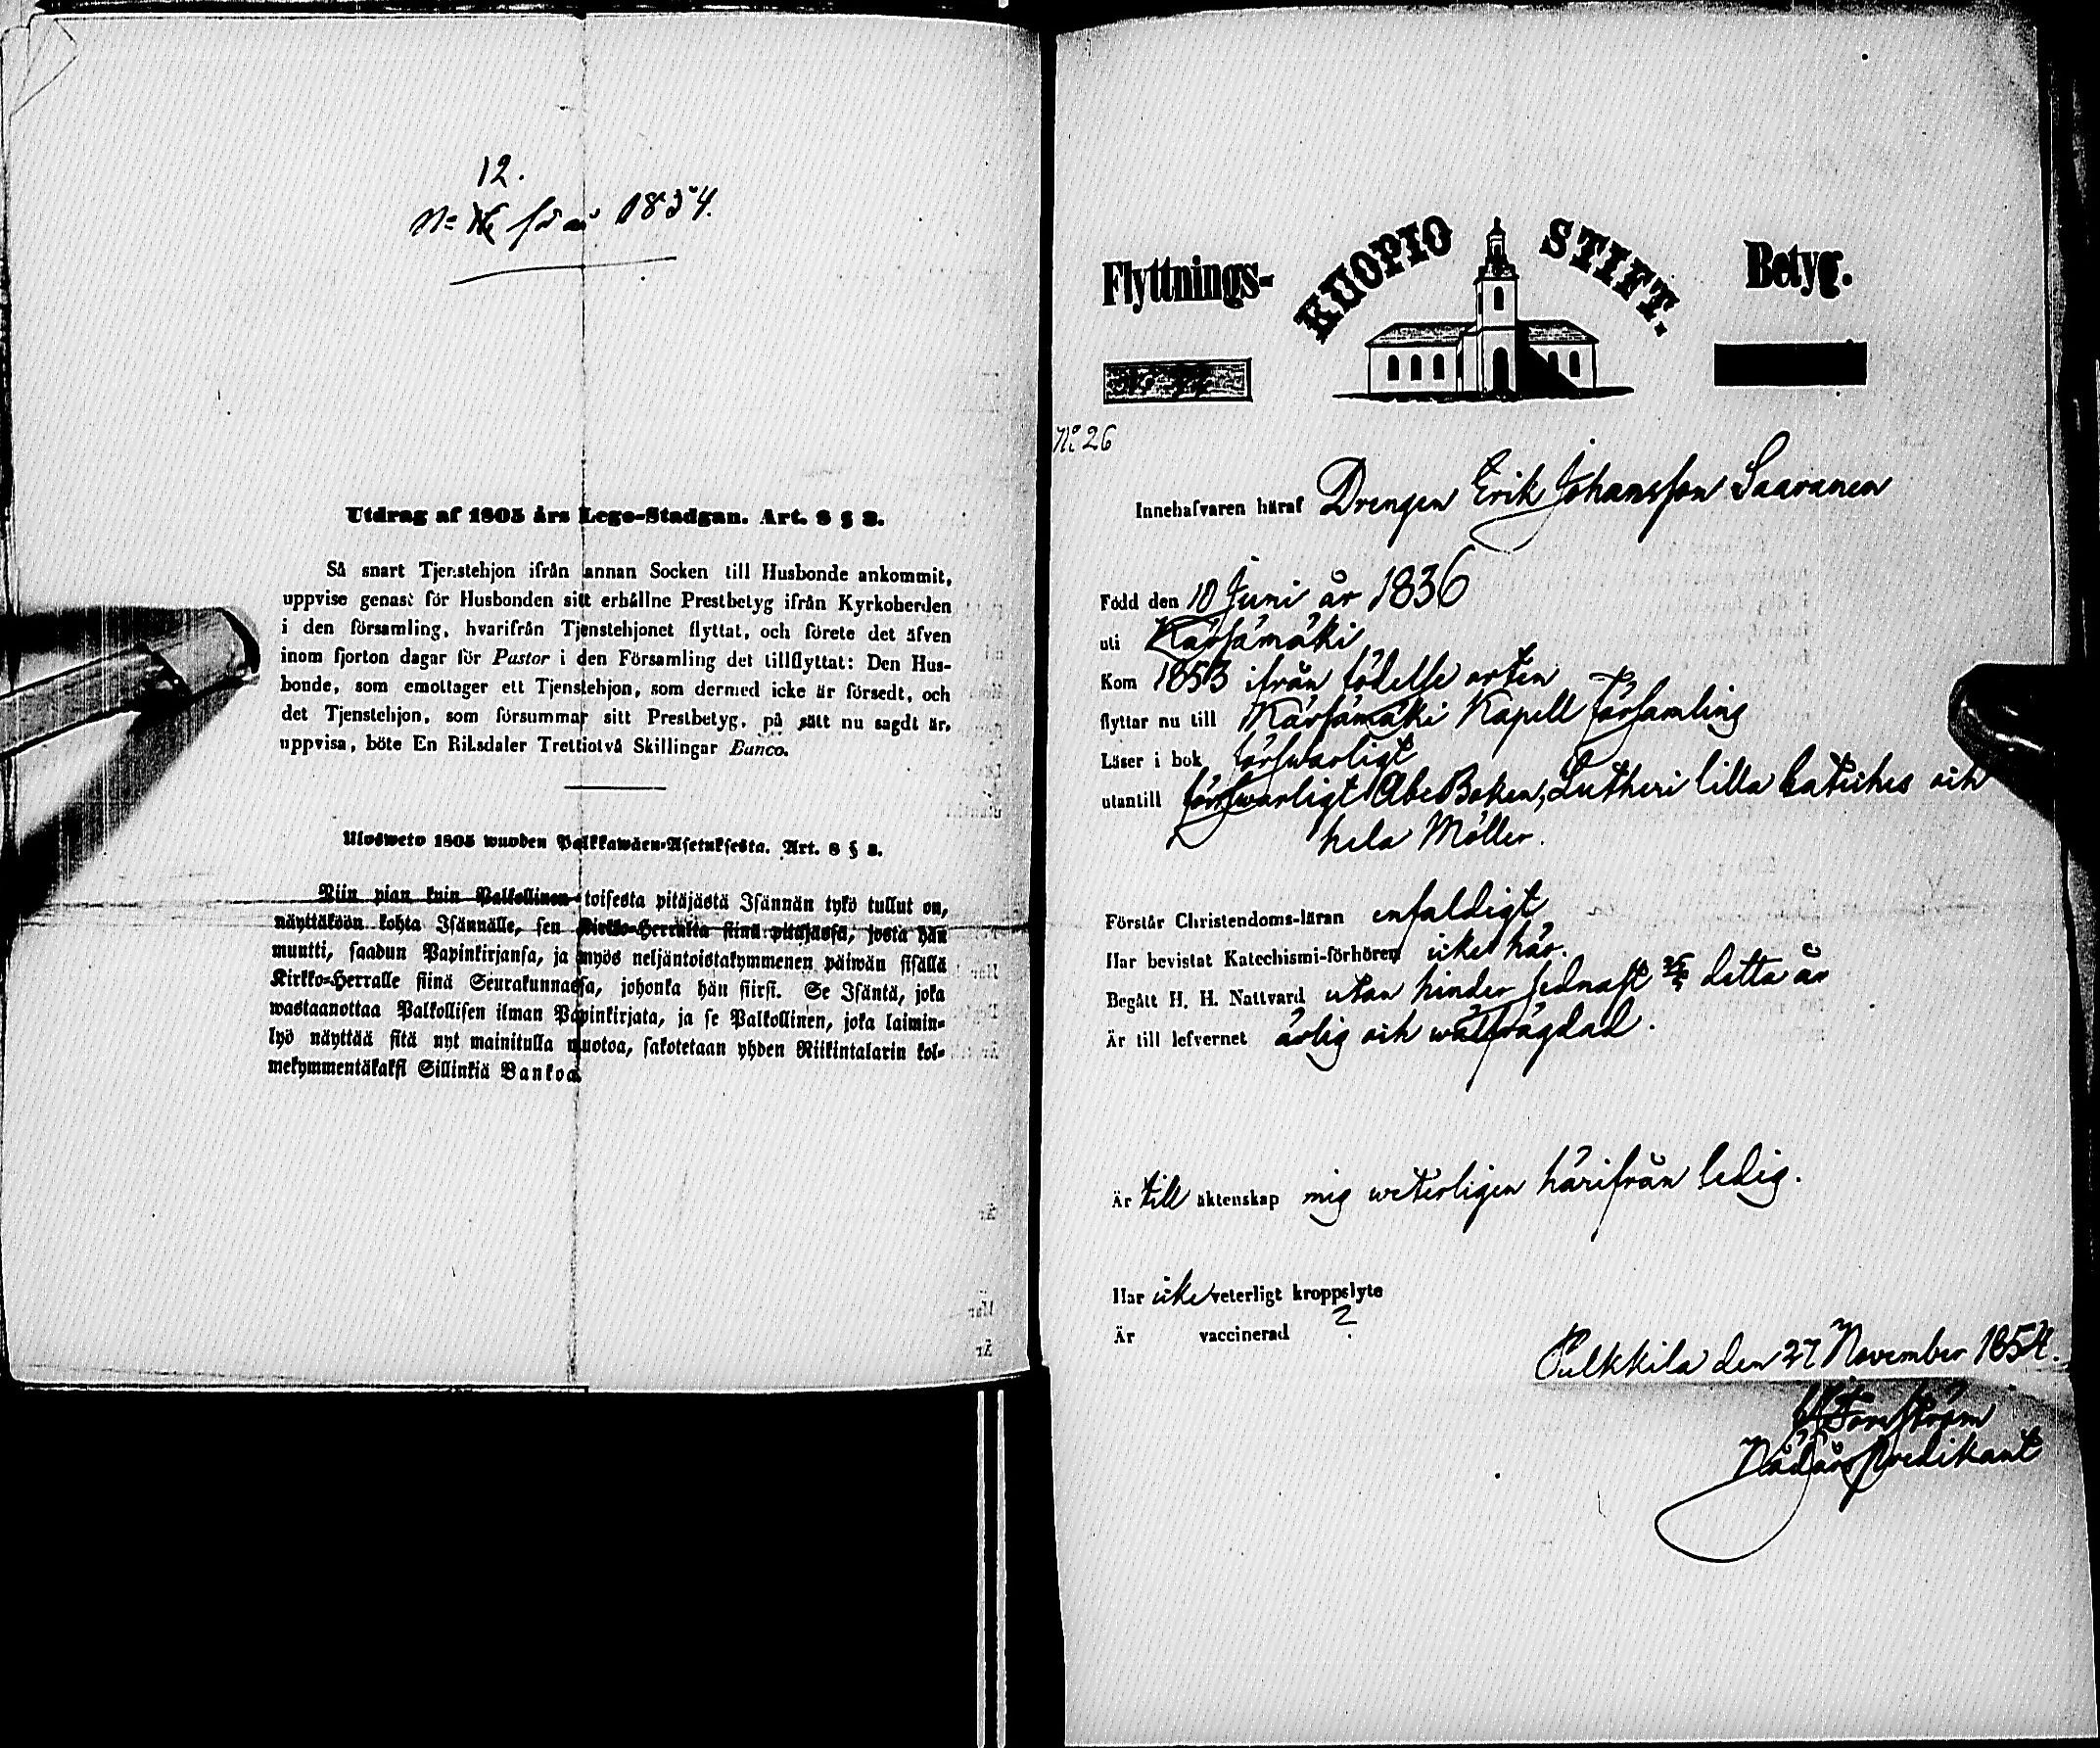 12.
för år 1854.
Utdrag af 1805 års Lego-Stadgan. Art. 8 § 2.
Så snart Tjenstehjon ifrån annan Socken till Husbonde ankommit,
uppvise genast för Husbonden sitt erhållne Prestbetyg ifrån Kyrkoherden
i den församling, hvarifrån Tjenstehjonet flyttat, och förete det äfven
inom fjorton dagar för Pastor i den Församling det tillflyttat: Den Hus-
bonde, som emottager ett Tjenstehjon, som dermed icke är försedt, och
det Tjenstehjon, som försummar sitt Prestbetyg, på sätt nu sagdt är,
uppvisa, böte En Riksdaler Trettiotvå Skillingar Banco.
Ulosweto 1805 wuoden Palkkawäen-Asetuksesta. Art. 8 § 2.
Niin pian kuin Palkollinen toisesta pitäjästä Isännän tykö tullut on,
näyttäköön kohta Isännälle, sen Kirkko-Herralta siinä pitäjässä, josta hän
muutti, saadun Papinkirjansa, ja myös neljäntoistakymmenen päiwän sisällä
Kirkko-Herralle siinä Seurakunnassa, johonka hän siirsi. Se Isäntä, joka
wastaanottaa Palkollisen ilman Papinkirjata, ja se Palkollinen, joka laimin-
lyö näyttää sitä nyt mainitulla muotoa, sakotetaan yhden Riikintalarin kol-
mekymmentäkaksi Sillinkiä Bankoa.
Flyttnings- KUOPIO STIFT. Betyg.
No 26
Innehafvaren häraf Drengen Erik Johansson Saaranen
Född den 10 Juni år 1836
uti Kärsämäki
Kom 1853 ifrån födelse orten
flyttar nu till Kärsämäki Kapell församling
Läser i bok försvarligt
utantill försvarligt Abc Boken, Lutheri lilla Cateches och
hela Möller.
Förstår Christendoms-läran enfaldigt
Har bevistat Katechismi-förhören icke här.
Begått H. H. Nattvard utan hinder sednast detta år
Är till lefvernet ärlig och wälfrägdad.
Är till äktenskap mig weterligen härifrån ledig.
Har icke veterligt kroppslyte
Är vaccinerad ?
Pulkkila den 27 November 1854.
Nådårs predikant